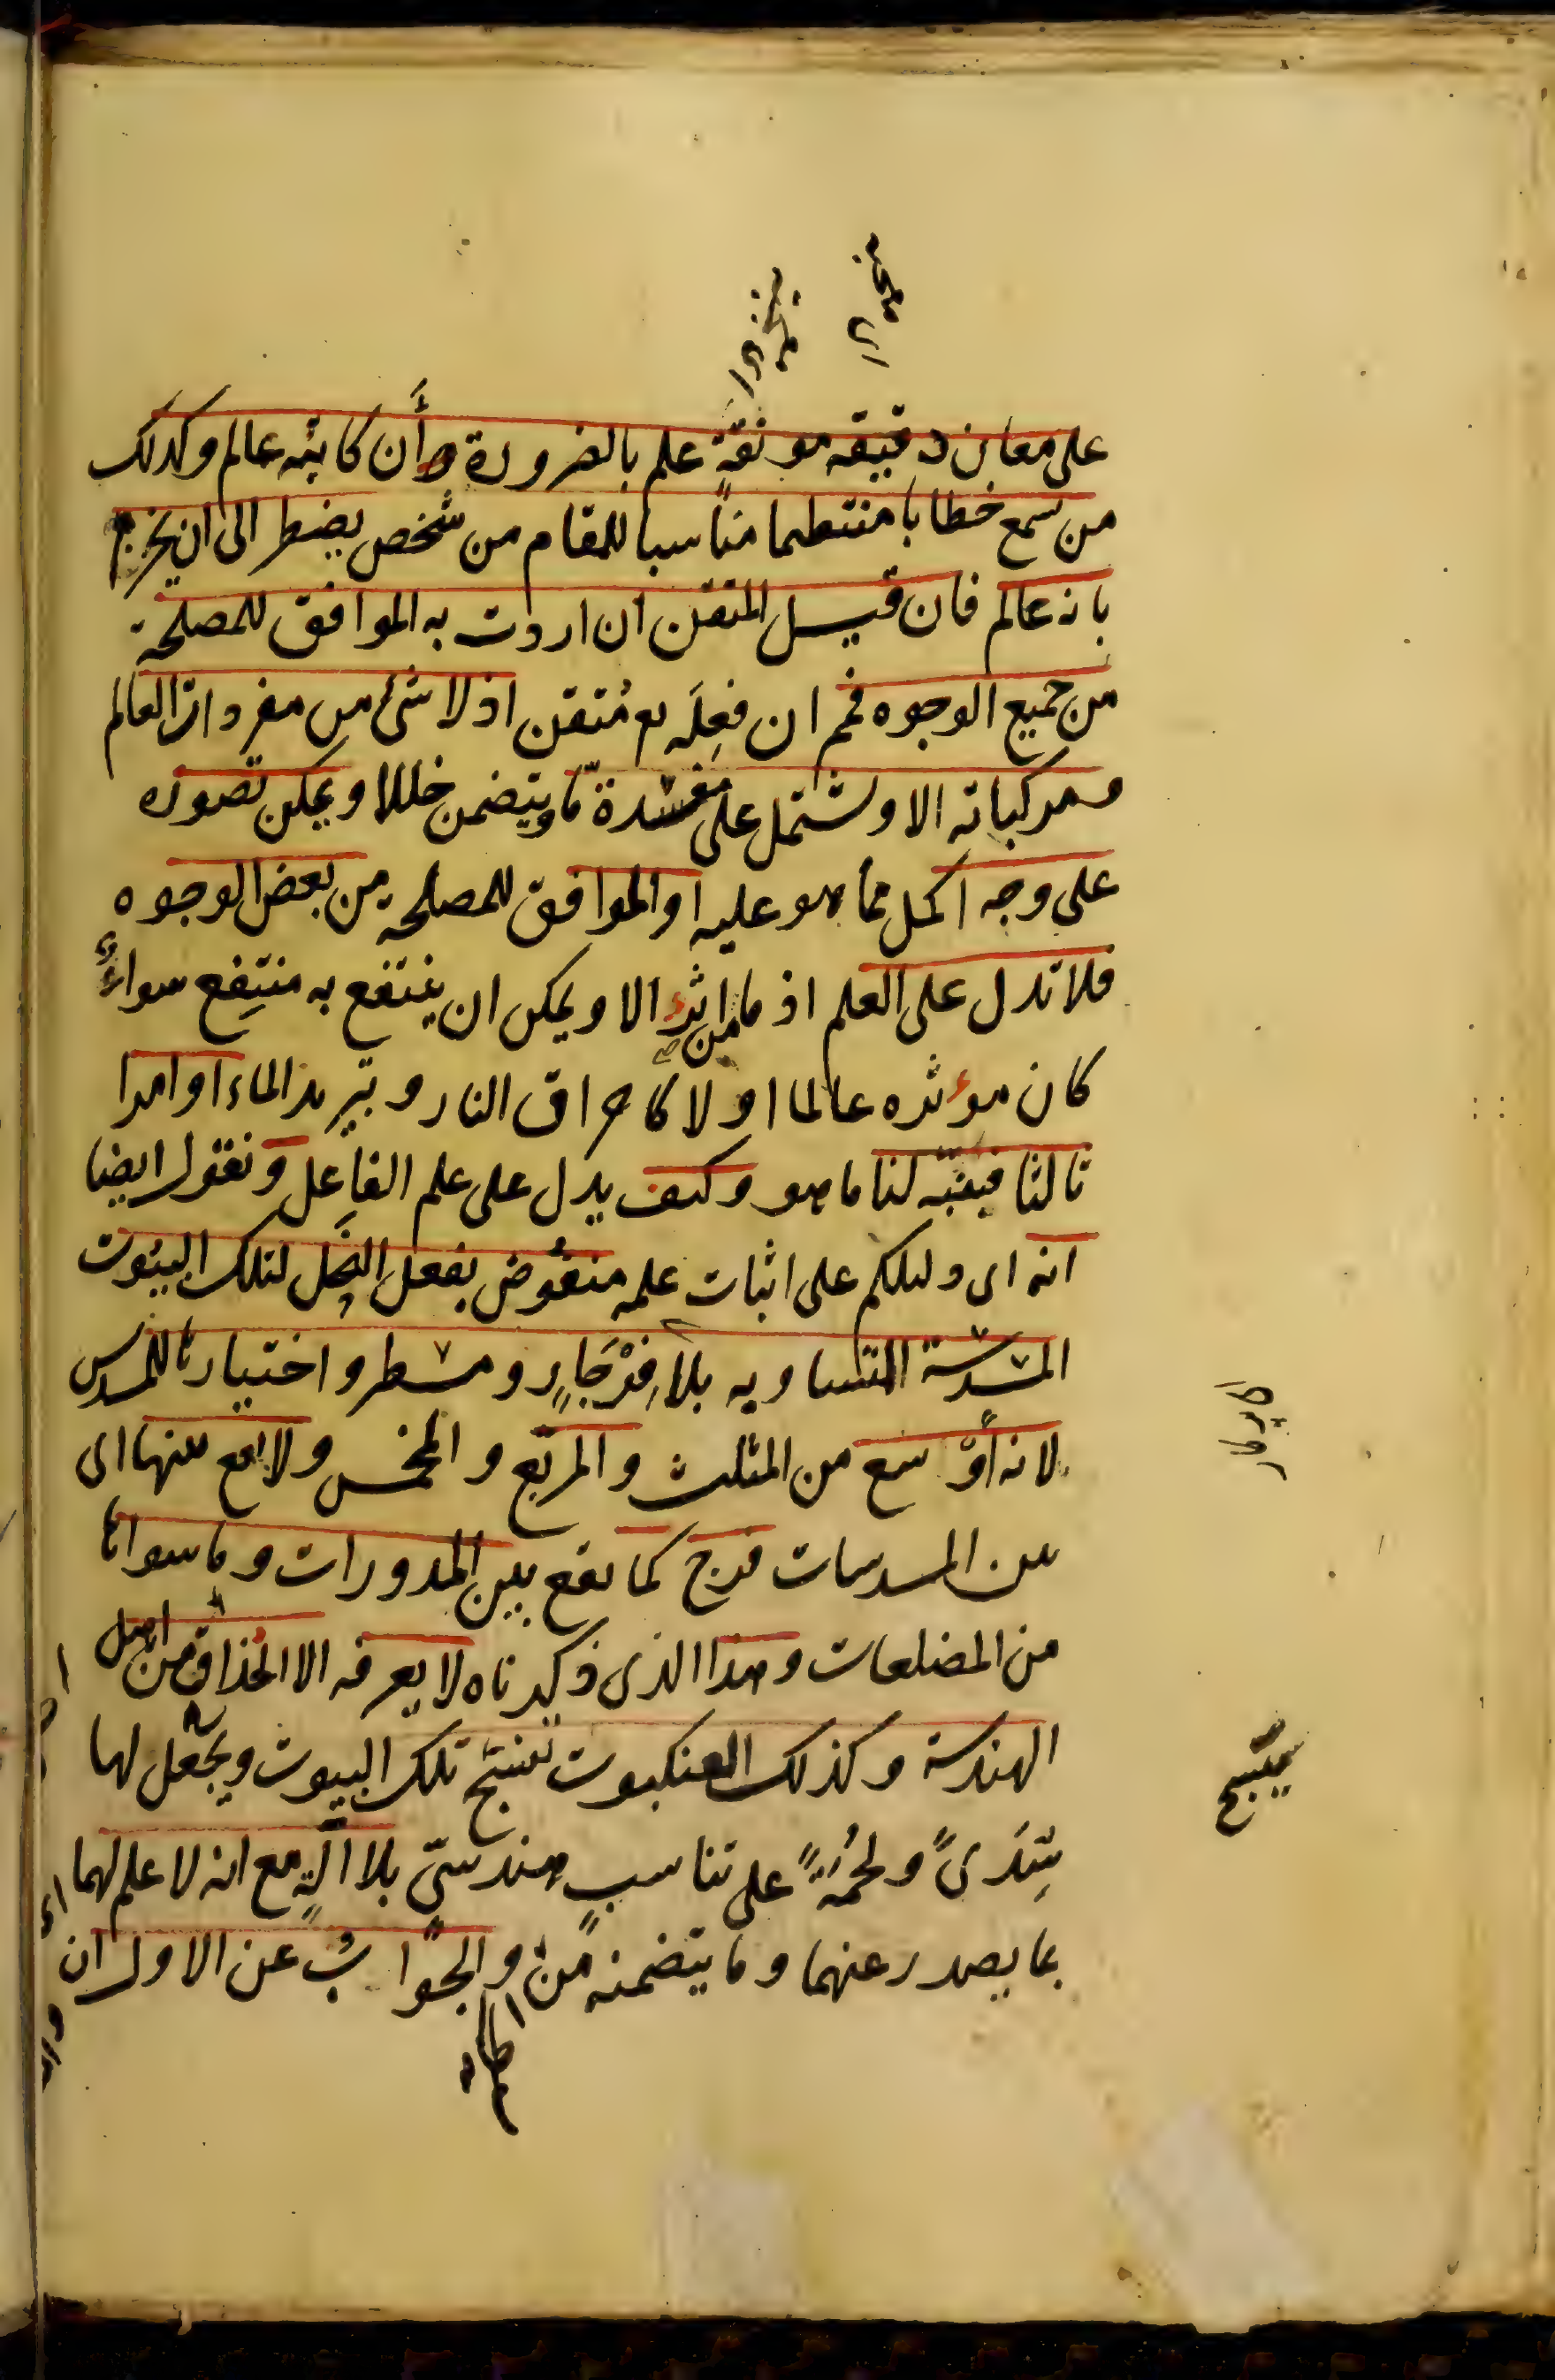 على معان دقيقه مونقة علم بالضرورة أن كاتبه عالم وكذلك
من سمع خطابا منتظما مناسبا للمقام من شخص يضطر الى ان يجزم
بانه عالم فان قيل المتقن ان اردت به الموافق للمصلحة
من جميع الوجوه فم ان فعله مع متقن اذ لا شئ من مفردات العالم
ومركباته الا ويشتمل على مفسدة ما ويتضمن خللا ويمكن تصوره
على وجه اكمل مما هو عليه او الموافق للمصلحه من بعض الوجوه
فلا تدل على العلم اذ ما من اثر الا ويمكن ان ينتفع به منتفع سواء
كان مؤثره عالما او لا كاحراق النار وتبريد الماء او امرا
ثالثا فبينه لنا ما هو وكيف يدل على علم الفاعل ونقول ايضا
انه اى دليلكم على اثبات علمه منقوض بفعل النحل لتلك البيوت
المسدسة المتساويه بلا فرجار ومسطر واختيارها للمسدس
لانه أوسع من المثلث والمربع والمخمس ولا يقع بينها اى
بين المسدسات فرج كما يقع بين المدورات وما سواها
من المضلعات وهذا الذى ذكرناه لا يعرفه الا الحذاق من اهل
الهندسة وكذلك العنكبوت تنسج تلك البيوت ويجعل لها
سدى ولحمة على تناسب هندسى بلا الة مع انه لا علم لهما
بما يصدر عنهما وما يتضمنه من الحكم والجواب عن الاول ان